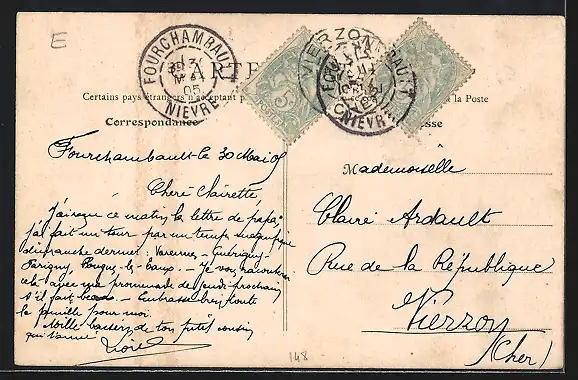 E
FOURCHAMBAULT
MAI
05
NIEVRE
CARTE
VIERZON
FOURCHAMBAULT
NIEVRE
Certains pays étrangers n'acceptent p
à la Poste
Correspondance
esse
Fourchambault le 30 Mai 05
Chère Clairette,
J'ai reçu ce matin la lettre de papa.
J'ai fait un tour par un temps magnifique
dimanche dernier : Varennes - Guérigny -
Parigny, Pougues-les-Eaux. - Je vous raconterai
cela avec ma promenade de jeudi prochain
s'il fait beau - Embrasse bien toute
la famille pour moi.
Mille baisers de ton petit cousin
qui t'aime
Mademoiselle
Claire Ardault
Rue de la République
Vierzon
(Cher)
148